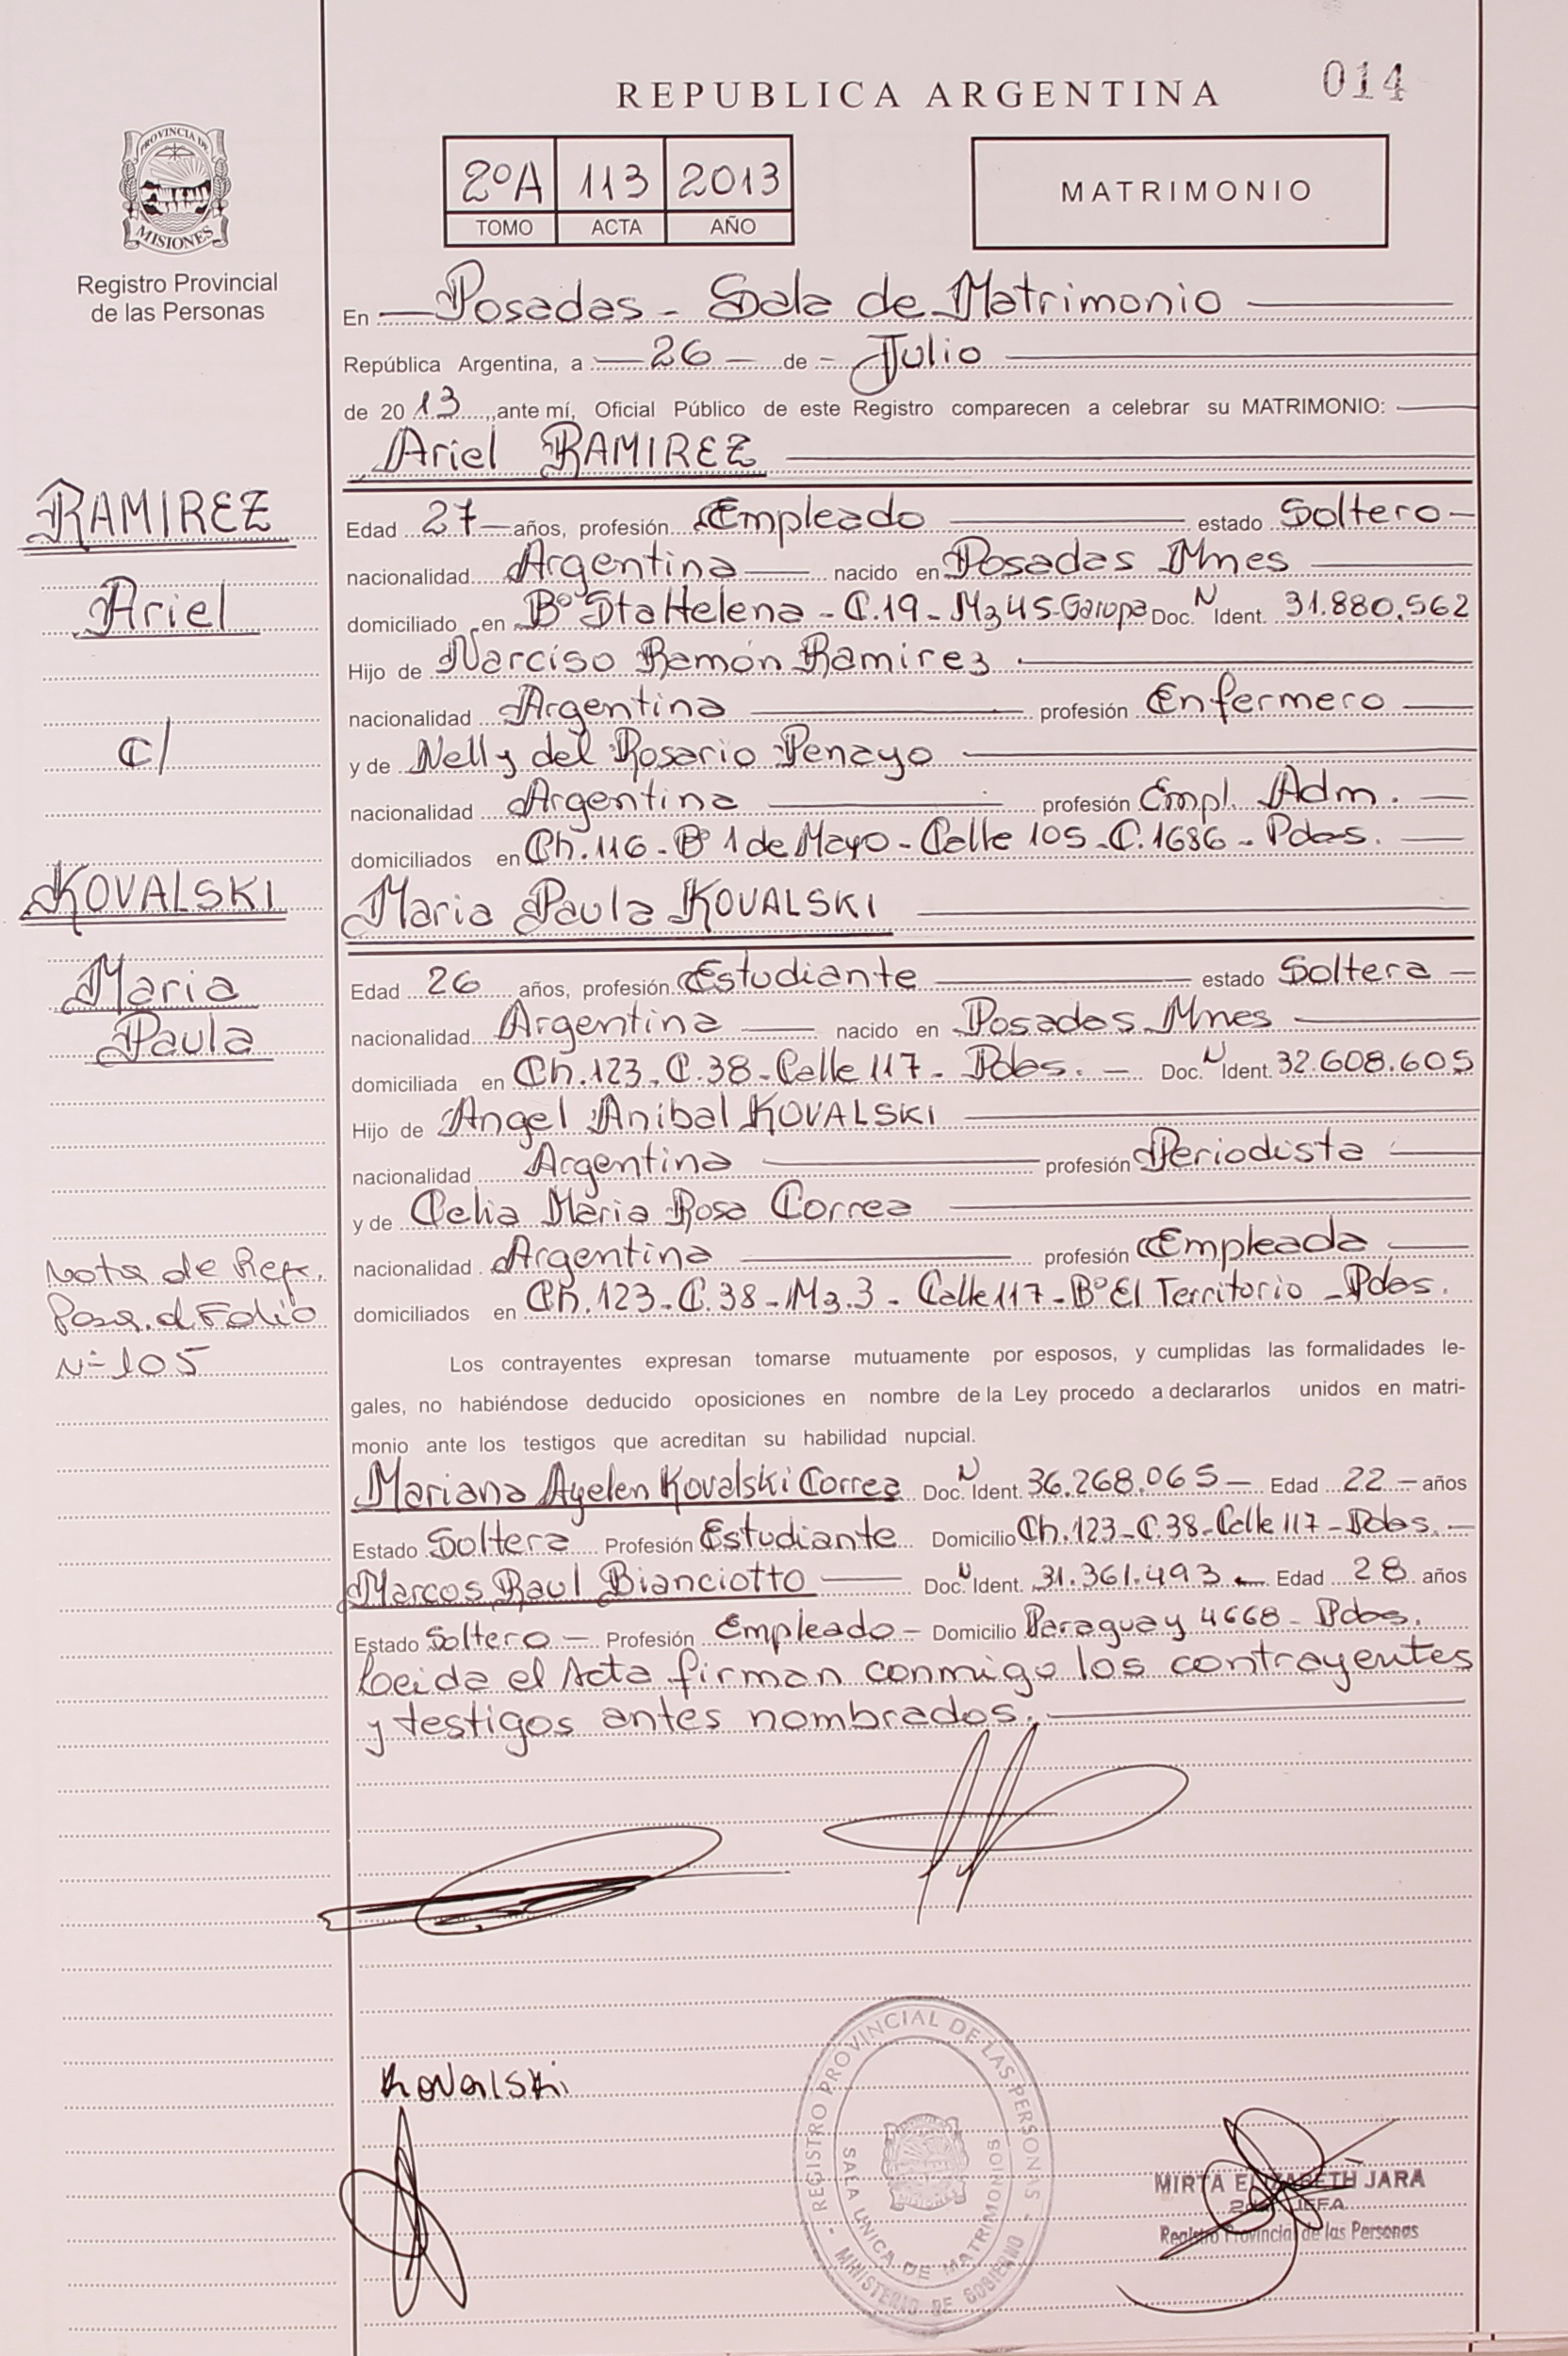 014
REPUBLICA ARGENTINA
2ºA 113 2013
TOMO ACTA AÑO
MATRIMONIO
PROVINCIA DE
MISIONES
Registro Provincial
de las Personas
En Posadas - Sala de Matrimonio
República Argentina, a 26 de Julio
de 2013, ante mí, Oficial Público de este Registro comparecen a celebrar su MATRIMONIO:
Ariel RAMIREZ
RAMIREZ
Ariel
c/
KOVALSKI
Maria
Paula
Nota de Ref.
Pasa. al Folio
Nº 105
Edad 27 años, profesión Empleado estado Soltero
nacionalidad Argentina nacido en Posadas Mnes
domiciliado en Bº Sta Helena - C.19 - Mz 45 - Garupa Doc. N Ident. 31.880.562
Hijo de Narciso Ramón Ramirez
nacionalidad Argentina profesión Enfermero
y de Nelly del Rosario Penayo
nacionalidad Argentina profesión Empl. Adm.
domiciliados en Ch.116 - Bº 1 de Mayo - Calle 105 - C.1686 - Pdas.
Maria Paula KOVALSKI
Edad 26 años, profesión Estudiante estado Soltera
nacionalidad Argentina nacido en Posadas Mnes
domiciliada en Ch.123 - C.38 - Calle 117 - Pdas. Doc. N Ident. 32.608.605
Hijo de Angel Anibal KOVALSKI
nacionalidad Argentina profesión Periodista
y de Celia Maria Rosa Correa
nacionalidad Argentina profesión Empleada
domiciliados en Ch.123 - C.38 - Mz.3 - Calle 117 - Bº El Territorio - Pdas.
Los contrayentes expresan tomarse mutuamente por esposos, y cumplidas las formalidades le-
gales, no habiéndose deducido oposiciones en nombre de la Ley procedo a declararlos unidos en matri-
monio ante los testigos que acreditan su habilidad nupcial.
Mariana Ayelen Kovalski Correa Doc. N Ident. 36.268.065 Edad 22 años
Estado Soltera Profesión Estudiante Domicilio Ch.123 - C.38 - Calle 117 - Pdas.
Marcos Raul Bianciotto Doc. N Ident. 31.361.493 Edad 28 años
Estado Soltero Profesión Empleado Domicilio Paraguay 4668 - Pdas.
Leida el Acta firman conmigo los contrayentes
y testigos antes nombrados.
Kovalski
REGISTRO PROVINCIAL DE LAS PERSONAS
SALA UNICA DE MATRIMONIOS
MINISTERIO DE GOBIERNO
MIRTA ELIZABETH JARA
JEFA
Registro Provincial de las Personas